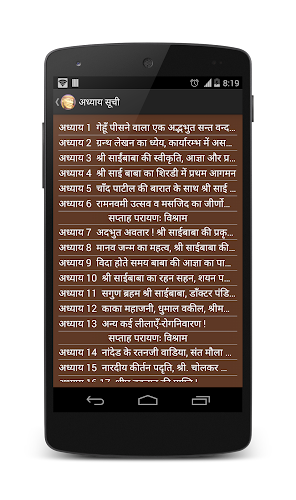 8:19
अध्याय सूची
अध्याय 1 गेहूँ पीसने वाला एक अद्भुत सन्त वन्द...
अध्याय 2 ग्रन्थ लेखन का ध्येय, कार्यारम्भ में अस...
अध्याय 3 श्री साईंबाबा की स्वीकृति, आज्ञा और प्र...
अध्याय 4 श्री साईं बाबा का शिरडी में प्रथम आगमन
अध्याय 5 चाँद पाटील की बारात के साथ श्री साई ...
अध्याय 6 रामनवमी उत्सव व मसजिद का जीर्णो...
सप्ताह परायण: विश्राम
अध्याय 7 अदभुत अवतार ! श्री साईबाबा की प्रकृ...
अध्याय 8 मानव जन्म का महत्व, श्री साईबाबा की...
अध्याय 9 विदा होते समय बाबा की आज्ञा का पा...
अध्याय 10 श्री साईबाबा का रहन सहन, शयन प...
अध्याय 11 सगुण ब्रहम श्री साईबाबा, डॉक्टर पंडि...
अध्याय 12 काका महाजनी, धुमाल वकील, श्रीम...
अध्याय 13 अन्य कई लीलाऐं-रोगनिवारण !
सप्ताह परायण: विश्राम
अध्याय 14 नांदेड के रतनजी वाडिया, संत मौला ...
अध्याय 15 नारदीय कीर्तन पदृति, श्री. चोलकर ...
अध्याय 16-17